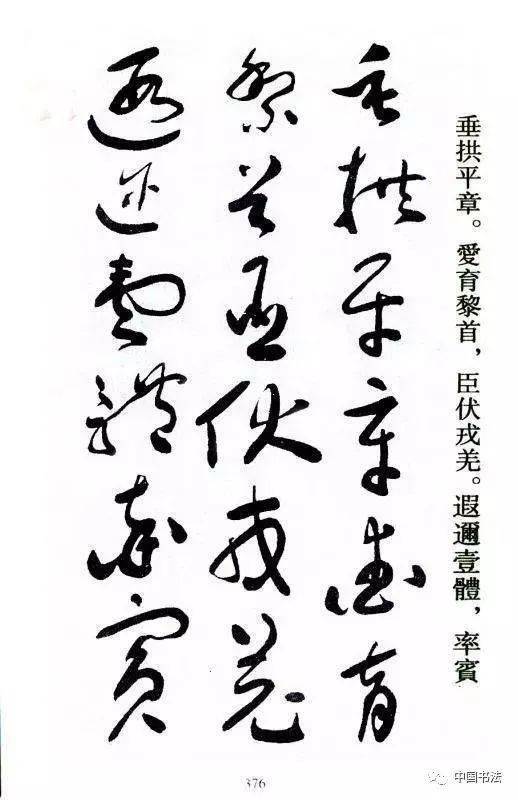 垂拱平章。愛育黎首，臣伏戎羌。遐邇壹體，率賓
垂拱平章愛育
黎首臣伏戎羌
遐邇壹體率賓
376
中国书法